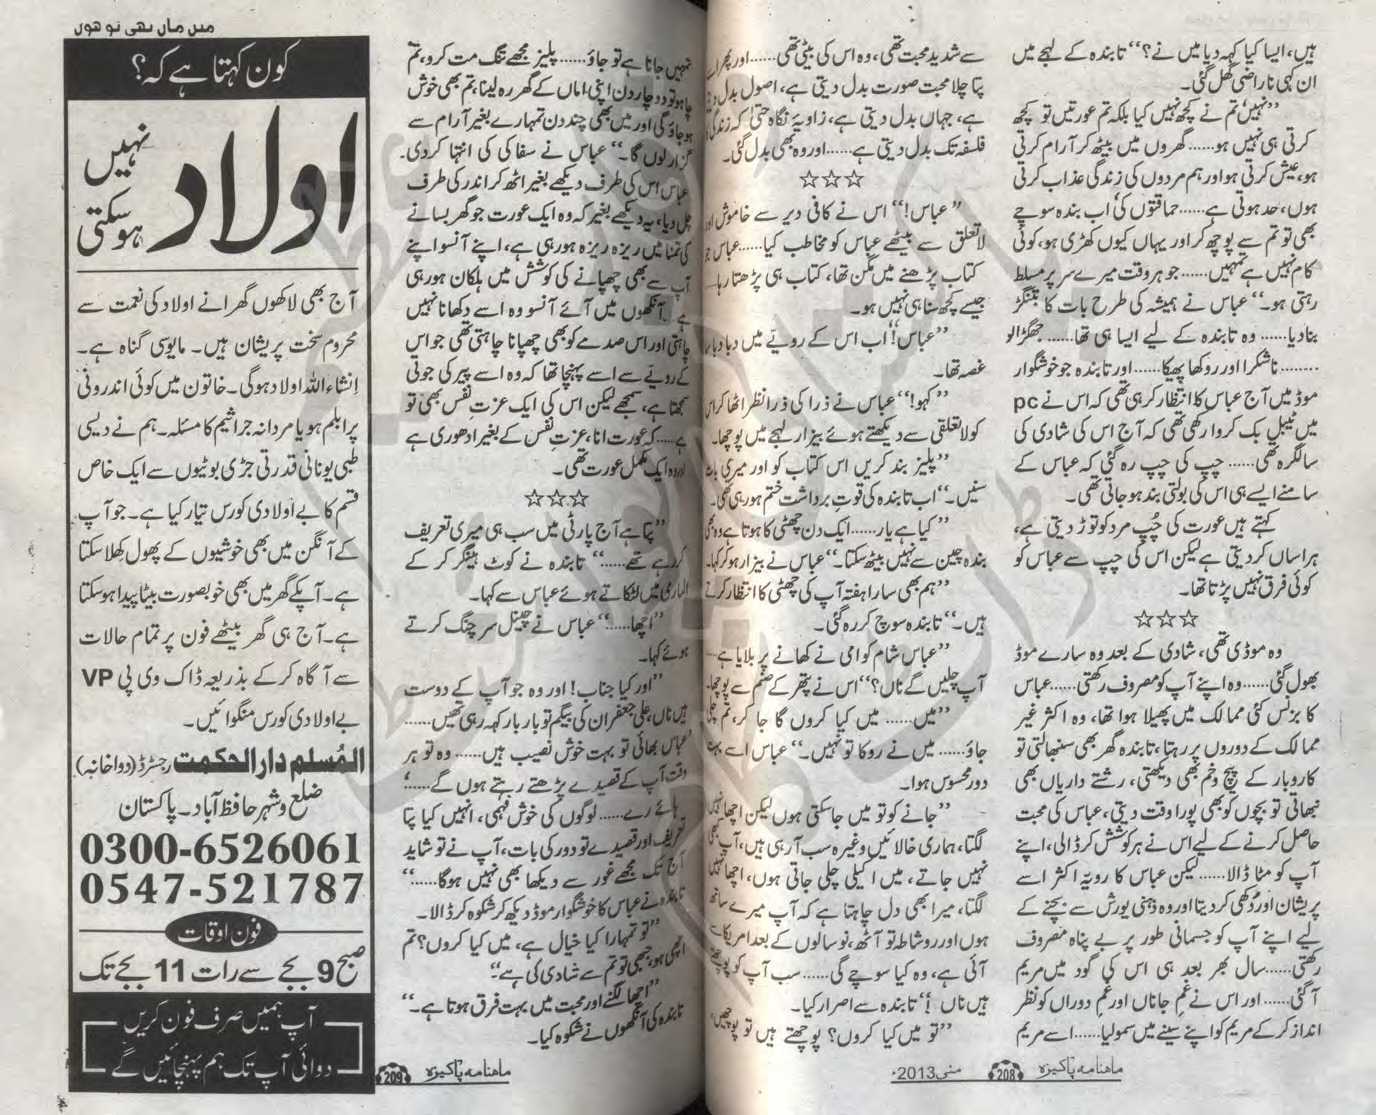 ہیں، ایسا کیا کہہ دیا میں نے؟'' تابندہ کے لہجے میں
ان کہی ناراضی گھل گئی۔
''نہیں تم نے کچھ نہیں کیا بلکہ تم عورتیں تو کچھ
کرتی ہی نہیں ہو...... گھروں میں بیٹھ کر آرام کرتی
ہو، عیش کرتی ہو اور ہم مردوں کی زندگی عذاب کرتی
ہوں، حد ہوتی ہے...... حماقتوں کی اب بندہ سوچے
بھی تو تم سے پوچھ کر اور یہاں کیوں کھڑی ہو، کوئی
کام نہیں ہے تمہیں...... جو ہر وقت میرے سر پر مسلط
رہتی ہو۔'' عباس نے ہمیشہ کی طرح بات کا بتنگڑ
بنا دیا...... وہ تابندہ کے لیے ایسا ہی تھا...... جھگڑالو
........ ناشکرا اور روکھا پھیکا...... اور تابندہ جو خوشگوار
موڈ میں آج عباس کا انتظار کر رہی تھی کہ اس نے pc
میں ٹیبل بک کروا رکھی تھی کہ آج اس کی شادی کی
سالگرہ تھی...... چپ کی چپ رہ گئی کہ عباس کے
سامنے ایسے ہی اس کی بولتی بند ہو جاتی تھی۔
کہتے ہیں عورت کی چُپ مرد کو توڑ دیتی ہے،
ہراساں کر دیتی ہے لیکن اس کی چپ سے عباس کو
کوئی فرق نہیں پڑتا تھا۔
☆☆☆
وہ موڈی تھی، شادی کے بعد وہ سارے موڈ
بھول گئی...... وہ اپنے آپ کو مصروف رکھتی...... عباس
کا بزنس کئی ممالک میں پھیلا ہوا تھا، وہ اکثر غیر
ممالک کے دوروں پر رہتا، تابندہ گھر بھی سنبھالتی تو
کاروبار کے پیچ و خم بھی دیکھتی، رشتے داریاں بھی
نبھاتی تو بچوں کو بھی پورا وقت دیتی، عباس کی محبت
حاصل کرنے کے لیے اس نے ہر کوشش کر ڈالی، اپنے
آپ کو مٹا ڈالا...... لیکن عباس کا رویّہ اکثر اسے
پریشان اور دُکھی کر دیتا اور وہ ذہنی یورش سے بچنے کے
لیے اپنے آپ کو جسمانی طور پر بے پناہ مصروف
رکھتی...... سال بھر بعد ہی اس کی گود میں مریم
آ گئی...... اور اس نے غمِ جاناں اور غمِ دوراں کو نظر
انداز کر کے مریم کو اپنے سینے میں سمو لیا...... اسے مریم
سے شدید محبت تھی، وہ اس کی بیٹی تھی...... اور پھر اسے
پتا چلا محبت صورت بدل دیتی ہے، اصول بدل دیتی
ہے، جہاں بدل دیتی ہے، زاویۂ نگاہ حتیٰ کہ زندگی کا
فلسفہ تک بدل دیتی ہے...... اور وہ بھی بدل گئی۔
☆☆☆
''عباس!'' اس نے کافی دیر سے خاموش اور
لاتعلق سے بیٹھے عباس کو مخاطب کیا...... عباس جو
کتاب پڑھنے میں مگن تھا، کتاب ہی پڑھتا رہا...
جیسے کچھ سنا ہی نہیں ہو۔
''عباس!'' اب اس کے رویّے میں دبا دبا سا
غصہ تھا۔
''کہو!'' عباس نے ذرا کی ذرا نظر اٹھا کر اس
کو لاتعلقی سے دیکھتے ہوئے بیزار لہجے میں پوچھا۔
''پلیز بند کریں اس کتاب کو اور میری بات
سنیں۔'' اب تابندہ کی قوتِ برداشت ختم ہو رہی تھی۔
''کیا ہے یار...... ایک دن چھٹی کا ہوتا ہے وہ بھی
بندہ چین سے نہیں بیٹھ سکتا۔'' عباس نے بیزار ہو کر کہا۔
''ہم بھی سارا ہفتہ آپ کی چھٹی کا انتظار کرتے
ہیں۔'' تابندہ سوچ کر رہ گئی۔
''عباس شام کو امی نے کھانے پر بلایا ہے...
آپ چلیں گے ناں؟'' اس نے پتھر کے صنم سے پوچھا۔
''میں...... میں کیا کروں گا جا کر، تم چلی
جاؤ...... میں نے روکا تو نہیں۔'' عباس اسے بہت
دور محسوس ہوا۔
''جانے کو تو میں جا سکتی ہوں لیکن اچھا نہیں
لگتا، ہماری خالائیں وغیرہ سب آ رہی ہیں، آپ بھی
نہیں جاتے، میں اکیلی چلی جاتی ہوں، اچھا نہیں
لگتا، میرا بھی دل چاہتا ہے کہ آپ میرے ساتھ
ہوں اور روشاطہ تو آٹھ، نو سالوں کے بعد امریکا سے
آئی ہے، وہ کیا سوچے گی...... سب آپ کو پوچھتے
ہیں ناں!'' تابندہ سے اصرار کیا۔
''تو میں کیا کروں؟ پوچھتے ہیں تو پوچھیں،
ماہنامہ پاکیزہ 208 مئی 2013ء
تمہیں جانا ہے تو جاؤ...... پلیز مجھے تنگ مت کرو، تم
چاہو تو دو چار دن اپنی اماں کے گھر رہ لینا، تم بھی خوش
ہو جاؤ گی اور میں بھی چند دن تمہارے بغیر آرام سے
گزار لوں گا۔'' عباس نے سفاکی کی انتہا کر دی۔
عباس اس کی طرف دیکھے بغیر اٹھ کر اندر کی طرف
چل دیا، یہ دیکھے بغیر کہ وہ ایک عورت جو گھر بسانے
کی تمنا میں ریزہ ریزہ ہو رہی ہے، اپنے آنسو اپنے
آپ سے بھی چھپانے کی کوشش میں ہلکان ہو رہی
ہے۔ آنکھوں میں آئے آنسو وہ اسے دکھانا نہیں
چاہتی اور اس صدمے کو بھی چھپانا چاہتی تھی جو اس
کے رویے سے اسے پہنچا تھا کہ وہ اسے پیر کی جوتی
سمجھتا ہے، سمجھے لیکن اس کی ایک عزتِ نفس بھی تو
ہے...... کہ عورت انا، عزتِ نفس کے بغیر ادھوری ہے
اور وہ ایک مکمل عورت تھی۔
☆☆☆
''پتا ہے آج پارٹی میں سب ہی میری تعریف
کر رہے تھے......'' تابندہ نے کوٹ ہینگر کر کے
الماری میں لٹکاتے ہوئے عباس سے کہا۔
''اچھا......'' عباس نے چینل سرچنگ کرتے
ہوئے کہا۔
''اور کیا جناب! اور وہ جو آپ کے دوست
ہیں ناں، علی جعفر ان کی بیگم تو بار بار کہہ رہی تھیں......
عباس بھائی تو بہت خوش نصیب ہیں...... وہ تو ہر
وقت آپ کے قصیدے پڑھتے رہتے ہوں گے......'
ہائے رے...... لوگوں کی خوش فہمی، انہیں کیا پتا
تعریف اور قصیدے تو دور کی بات، آپ نے تو شاید
آج تک مجھے غور سے دیکھا بھی نہیں ہوگا......''
تابندہ نے عباس کا خوشگوار موڈ دیکھ کر شکوہ کر ڈالا۔
''تو تمہارا کیا خیال ہے، میں کیا کروں؟ تم
اچھی ہو، جبھی تو تم سے شادی کی ہے''
''اچھا لگنے اور محبت میں بہت فرق ہوتا ہے۔''
تابندہ کی آنکھوں نے شکوہ کیا۔
ماہنامہ پاکیزہ 209
میں ماں بھی تو ہوں
کون کہتا ہے کہ؟
اولاد نہیں ہو سکتی
آج بھی لاکھوں گھرانے اولاد کی نعمت سے
محروم سخت پریشان ہیں۔ مایوسی گناہ ہے۔
انشاء اللہ اولاد ہوگی۔ خاتون میں کوئی اندرونی
پرابلم ہو یا مردانہ جراثیم کا مسئلہ۔ ہم نے دیسی
طبی یونانی قدرتی جڑی بوٹیوں سے ایک خاص
قسم کا بے اولادی کورس تیار کیا ہے۔ جو آپ
کے آنگن میں بھی خوشیوں کے پھول کھلا سکتا
ہے۔ آپکے گھر میں بھی خوبصورت بیٹا پیدا ہو سکتا
ہے۔ آج ہی گھر بیٹھے فون پر تمام حالات
سے آگاہ کر کے بذریعہ ڈاک وی پی VP
بے اولادی کورس منگوائیں۔
المُسلم دارالحکمت رجسٹرڈ (دواخانہ)
ضلع و شہر حافظ آباد۔ پاکستان
0300-6526061
0547-521787
فون اوقات
صبح 9 بجے سے رات 11 بجے تک
آپ ہمیں صرف فون کریں
دوائی آپ تک ہم پہنچائیں گے